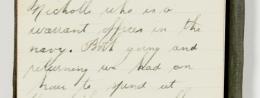 Nicholls who is a
warrant officer in the
navy. Both going and
returning we had an
hour to spend at